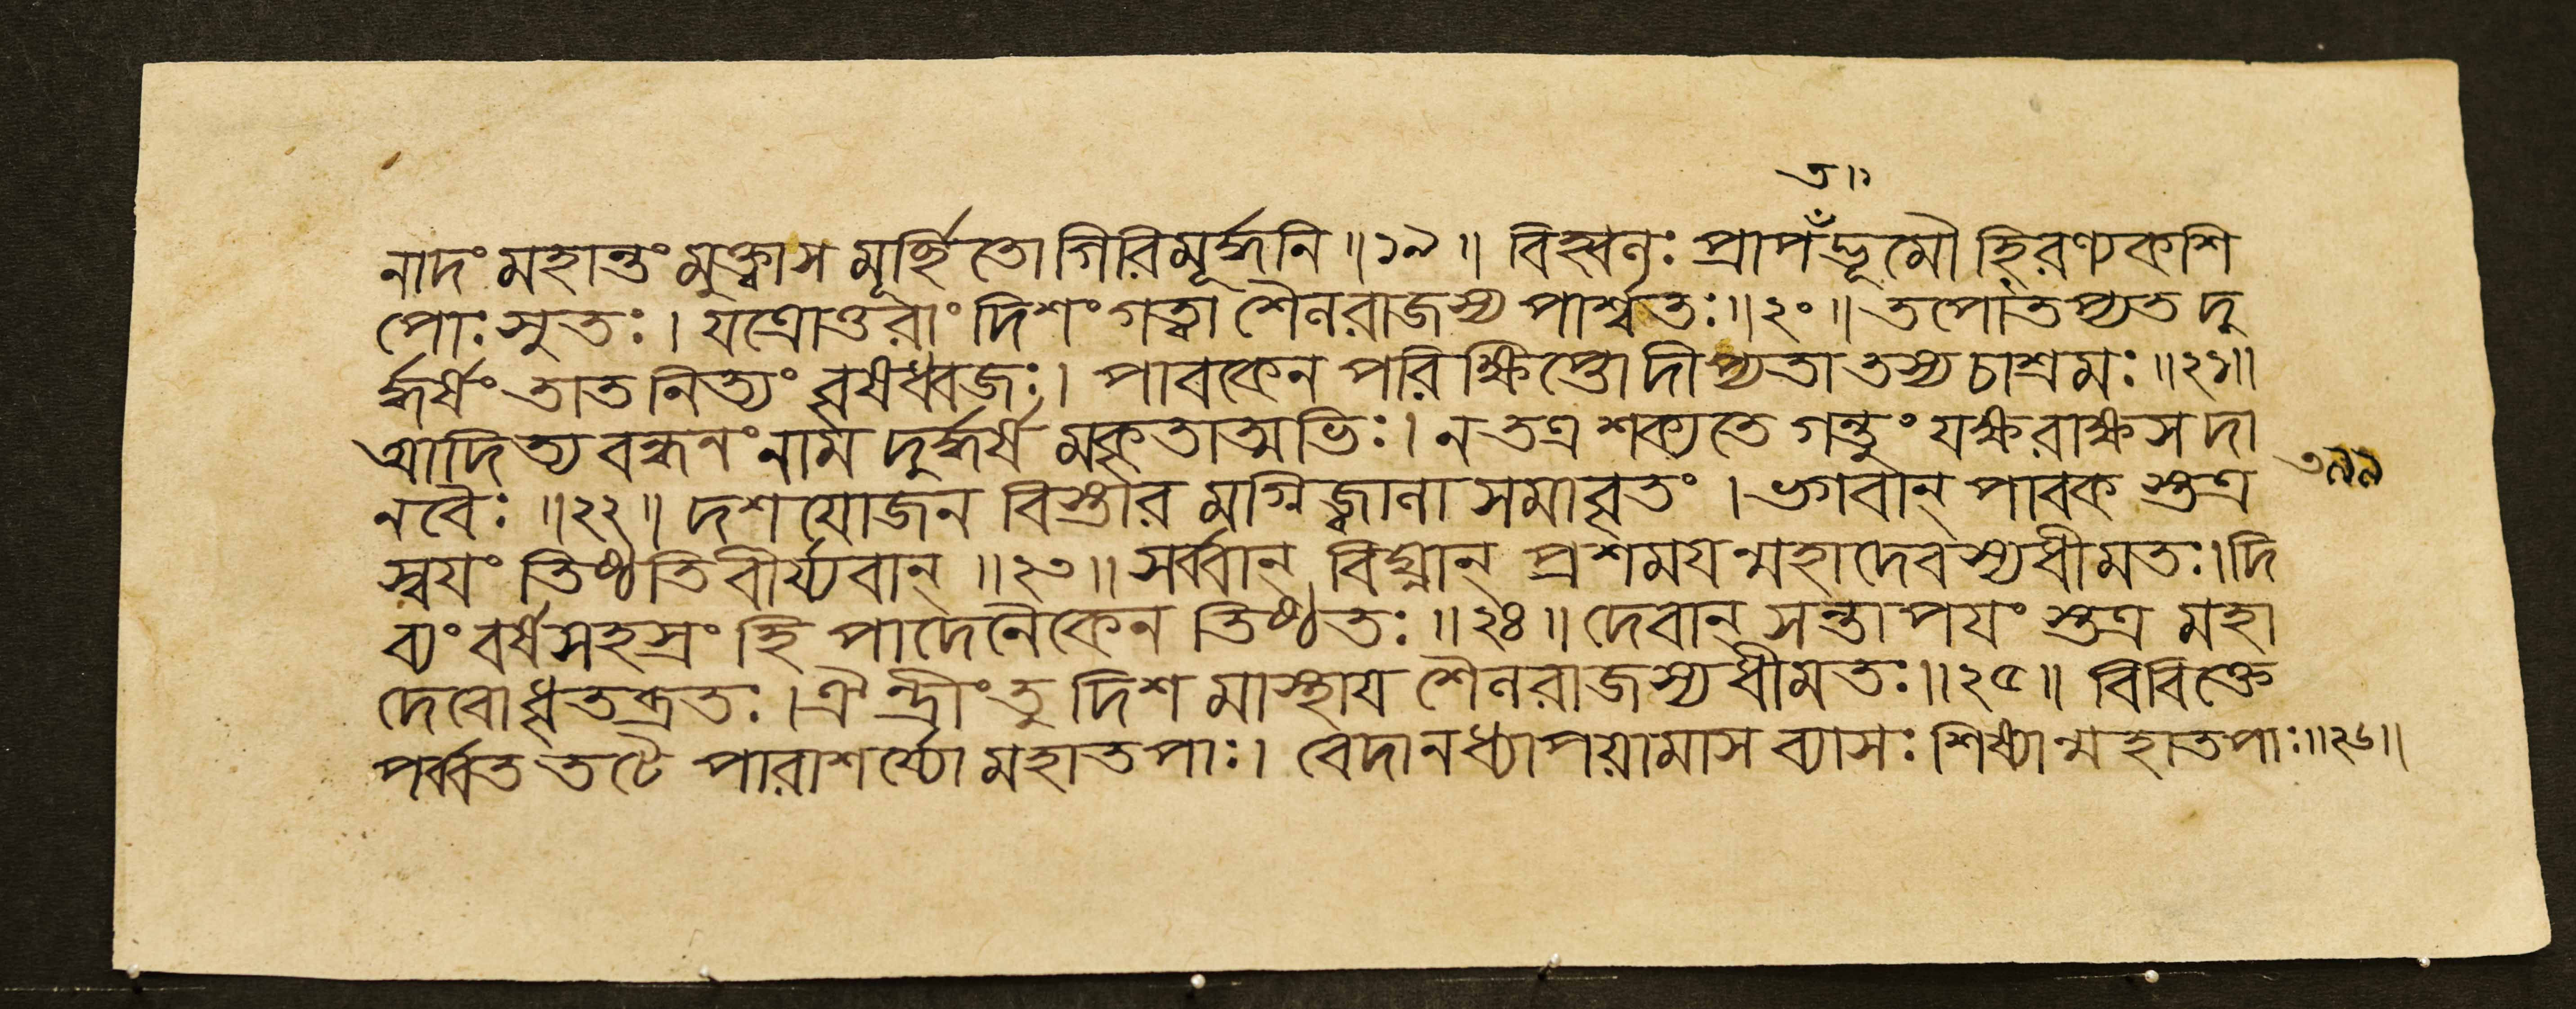 ত॥
নাদং মহান্তং মুক্ত্বাস মূর্চ্ছিতো গিরিমূর্দ্ধনি ॥১৯॥ বিহ্বলঃ প্রাপতঁদ্ভূমৌ হিরণ্যকশি
পোঃ সুতঃ। যত্রোত্তরাং দিশং গত্বা শৈলরাজস্য পার্শ্বতঃ॥২০॥ তপোঽতপ্যত দু
র্দ্ধর্ষং তাত নিত্যং বৃষধ্বজঃ। পাবকেন পরিক্ষিপ্তো দীপ্যতা তস্য চাশ্রমঃ ॥২১॥
আদিত্য বন্ধনং নাম দুর্দ্ধর্ষ মকৃতাত্মভিঃ। ন তত্র শক্যতে গন্তুং যক্ষরাক্ষস দা
নবৈঃ ॥২২॥ দশ যোজন বিস্তার মগ্নিজ্বালা সমাবৃতং । ভগবান্ পাবক স্তত্র
স্বয়ং তিষ্ঠতি বীর্য্যবান্ ॥২৩॥ সর্ব্বান্ বিঘ্নান্ প্রশময়ন্মহাদেবস্য ধীমতঃ। দি
ব্যং বর্ষসহস্রং হি পাদেনৈকেন তিষ্ঠতঃ ॥২৪॥ দেবান্ সন্তাপয়ং স্তত্র মহা
দেবো ধৃতব্রতঃ। ঐন্দ্রীং তু দিশ মাস্থায় শৈলরাজস্য ধীমতঃ॥২৫॥ বিবিক্তে
পর্ব্বত তটে পারাশর্য্যো মহাতপাঃ। বেদানধ্যাপয়ামাস ব্যাসঃ শিষ্যান্মহাতপাঃ॥২৬॥